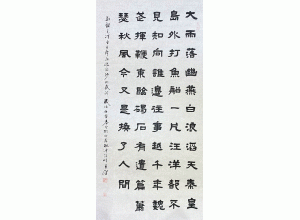 大雨落幽燕白浪滔天秦皇
島外打魚船一片汪洋都不
見知向誰邊往事越千年魏
武揮鞭東臨碣石有遺篇蕭
瑟秋風今又是換了人間